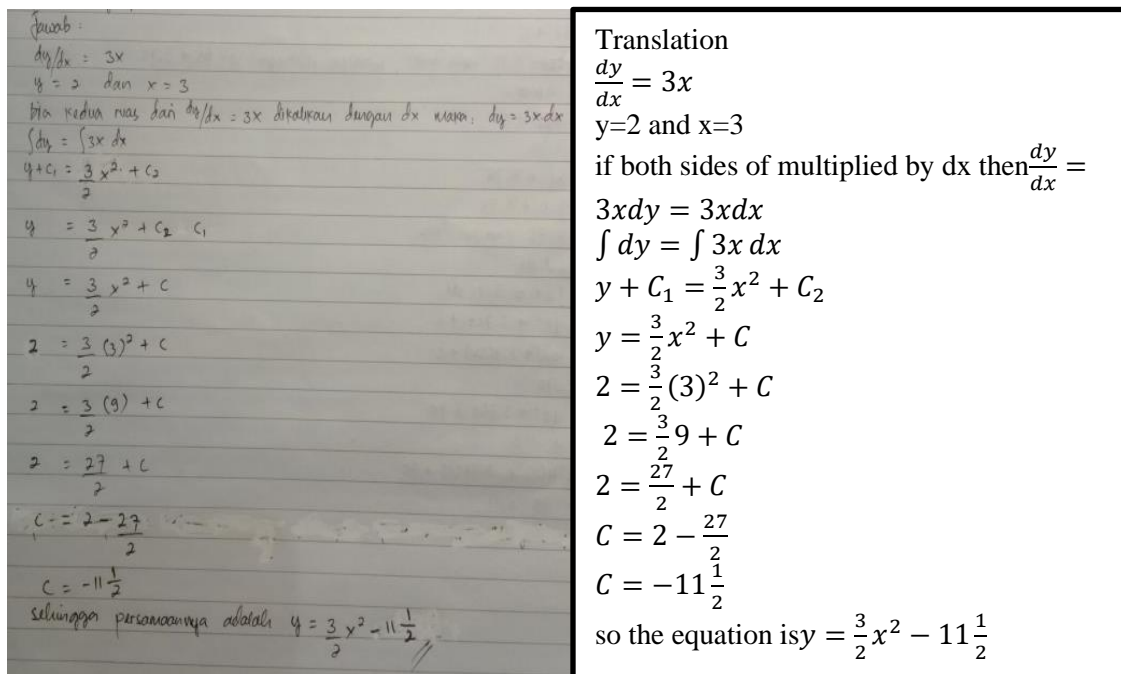 Jawab :
dy/dx = 3x
y = 2 dan x = 3
bila kedua ruas dari dy/dx = 3x dikalikan dengan dx maka: dy = 3x dx
∫dy = ∫3x dx
y + C₁ = 3/2 x² + C₂
y = 3/2 x² + C₂ C₁
y = 3/2 x² + C
2 = 3/2 (3)² + C
2 = 3/2 (9) + C
2 = 27/2 + C
C = 2 - 27/2
C = -11 1/2
sehingga persamaannya adalah y = 3/2 x² - 11 1/2
Translation
dy/dx = 3x
y=2 and x=3
if both sides of multiplied by dx then dy/dx =
3xdy = 3xdx
∫ dy = ∫ 3x dx
y + C₁ = 3/2 x² + C₂
y = 3/2 x² + C
2 = 3/2 (3)² + C
2 = 3/2 9 + C
2 = 27/2 + C
C = 2 − 27/2
C = −11 1/2
so the equation isy = 3/2 x² − 11 1/2